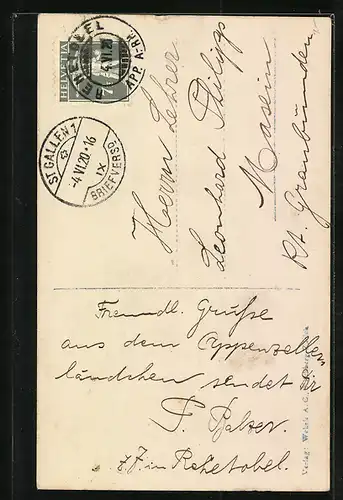 HELVETIA
REHETOBEL
4.VI.20
APP. A.-RH.
ST GALLEN 1
-4 VI.20-16
IX
BRIEFVERSD.
Herrn Lehrer
Leonhard Philipp
Masein
Kt. Graubünden
Freundl. Grüsse
aus dem Appenzeller-
ländchen sendet Dir
P. Balzer
z. Z. in Rehetobel.
Verlag: A. G.